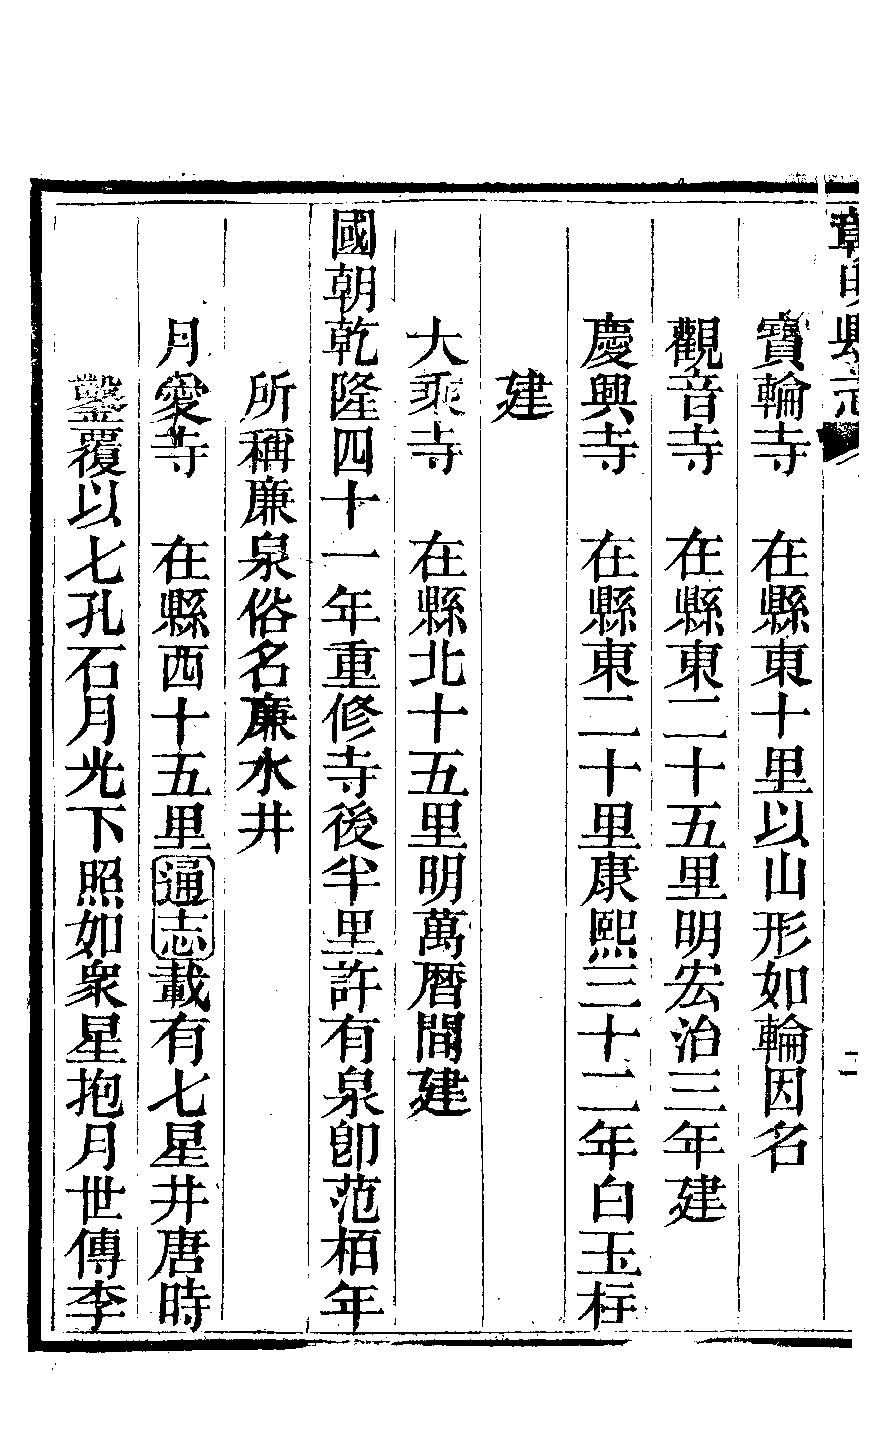 彰明縣志
二
寶輪寺　在縣東十里以山形如輪因名
觀音寺　在縣東二十五里明宏治三年建
慶興寺　在縣東二十里康熙三十二年白玉柱
建
大乘寺　在縣北十五里明萬曆間建
國朝乾隆四十一年重修寺後半里許有泉卽范栢年
所稱廉泉俗名廉水井
月愛寺　在縣西十五里通志載有七星井唐時
鑿覆以七孔石月光下照如衆星抱月世傳李